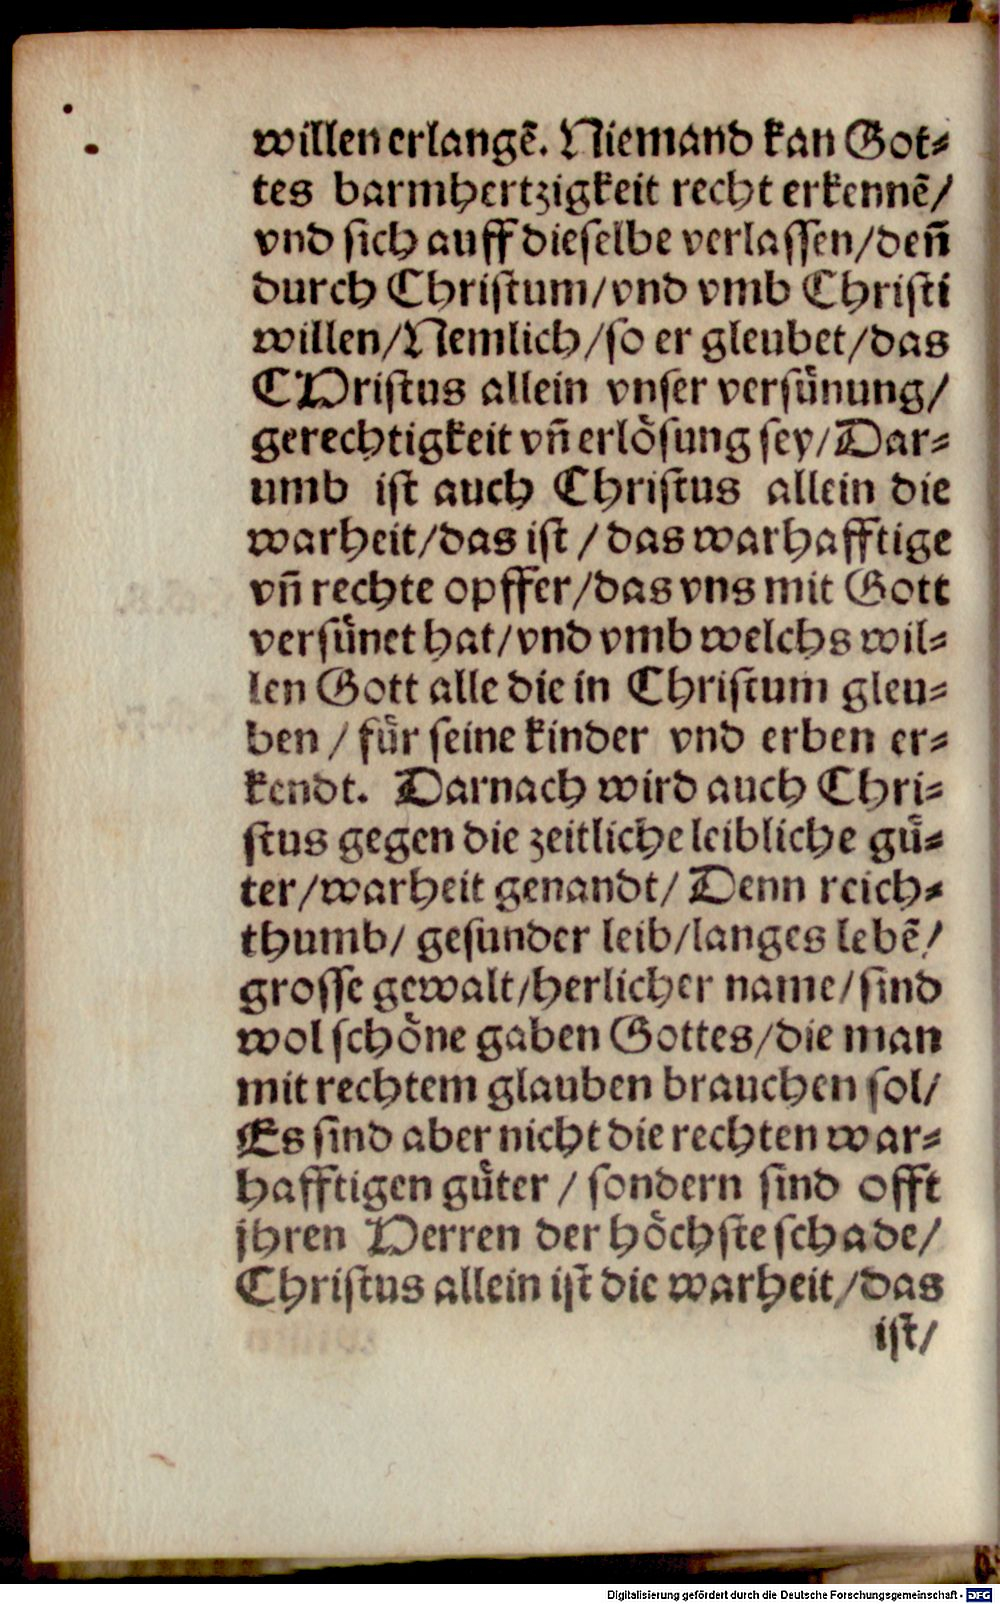 willen erlangẽ. Niemand kan Got⸗
tes barmhertzigkeit recht erkennẽ/
vnd sich auff dieselbe verlassen/deñ
durch Christum/vnd vmb Christi
willen/Nemlich/so er gleubet/das
CHristus allein vnser versuͤnung/
gerechtigkeit vñ erloͤsung sey/Dar⸗
umb ist auch Christus allein die
warheit/das ist / das warhafftige
vñ rechte opffer/das vns mit Gott
versuͤnet hat/vnd vmb welchs wil⸗
len Gott alle die in Christum gleu⸗
ben / fuͤr seine kinder vnd erben er⸗
kendt. Darnach wird auch Chri⸗
stus gegen die zeitliche leibliche guͤ⸗
ter/warheit genandt/ Denn reich⸗
thumb/ gesunder leib/langes lebẽ/
grosse gewalt/herlicher name/sind
wol schoͤne gaben Gottes/die man
mit rechtem glauben brauchen sol/
Es sind aber nicht die rechten war⸗
hafftigen guͤter / sondern sind offt
jhren Herren der hoͤchste schade/
Christus allein ist die warheit/das
ist/
Digitalisierung gefördert durch die Deutsche Forschungsgemeinschaft - DFG